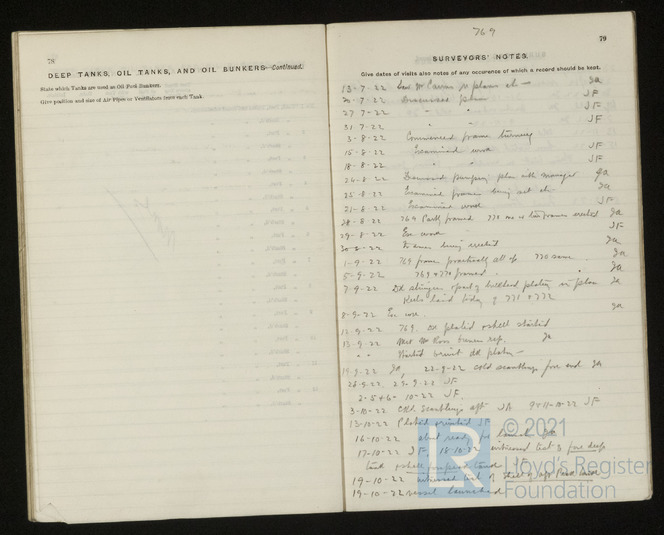 78
DEEP TANKS, OIL TANKS, AND OIL BUNKERS—Continued.
State which Tanks are used as Oil Fuel Bunkers.
Give position and size of Air Pipes or Ventilators from each Tank.
769
79
SURVEYORS' NOTES.
Give dates of visits also notes of any occurence of which a record should be kept.
13-7-22 Saw Mr re plans etc — Ja
20-7-22 Discussed plan JF
27-7-22 " " JF
31-7-22 " " JF
3-8-22 Commenced frame turning
15-8-22 Examined work JF
18-8-22 " " JF
24-8-22 Discussed pumping plan with manager Ja
25-8-22 Examined frames being set etc Ja
21-8-22 Examined work JF
28-8-22 769 Part framed 770 frames erected Ja
29-8-22 Ex work JF
30-8-22 Frames being erected Ja
1-9-22 769 frames practically all up 770 same Ja
5-9-22 769 & 770 framed. Ja
7-9-22 Dk stringer & part of bulkhead plating in place Ja
Keels laid today of 771 & 772
8-9-22 Ex work. Ja
12-9-22 769. Dk plated & shell started
13-9-22 Met Mr Ross rep. Ja
" " Started dk plates —
19-9-22 Ja, 22-9-22 Ckd scantlings fore end Ja
26-9-22, 29-9-22 JF
2-5+6- 10-22 JF.
3-10-22 Ckd Scantlings aft JA 9+11-10-22 JF
13-10-22 Plated & riveted JF
16-10-22 about ready for launch Ja
17-10-22 JF, 18-10-22 witnessed test of fore deep
tank & shell fore peak tank JF
19-10-22 witnessed test of shell of aft Peak tank
19-10-22 vessel launched
© 2021
LR
Lloyd's Register
Foundation